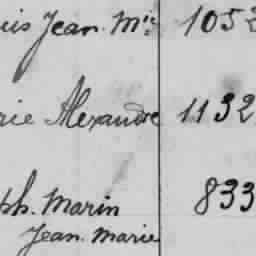 uis Jean Mie 1052
rie Alexandre 1132
ph. Marin 833
Jean Marie